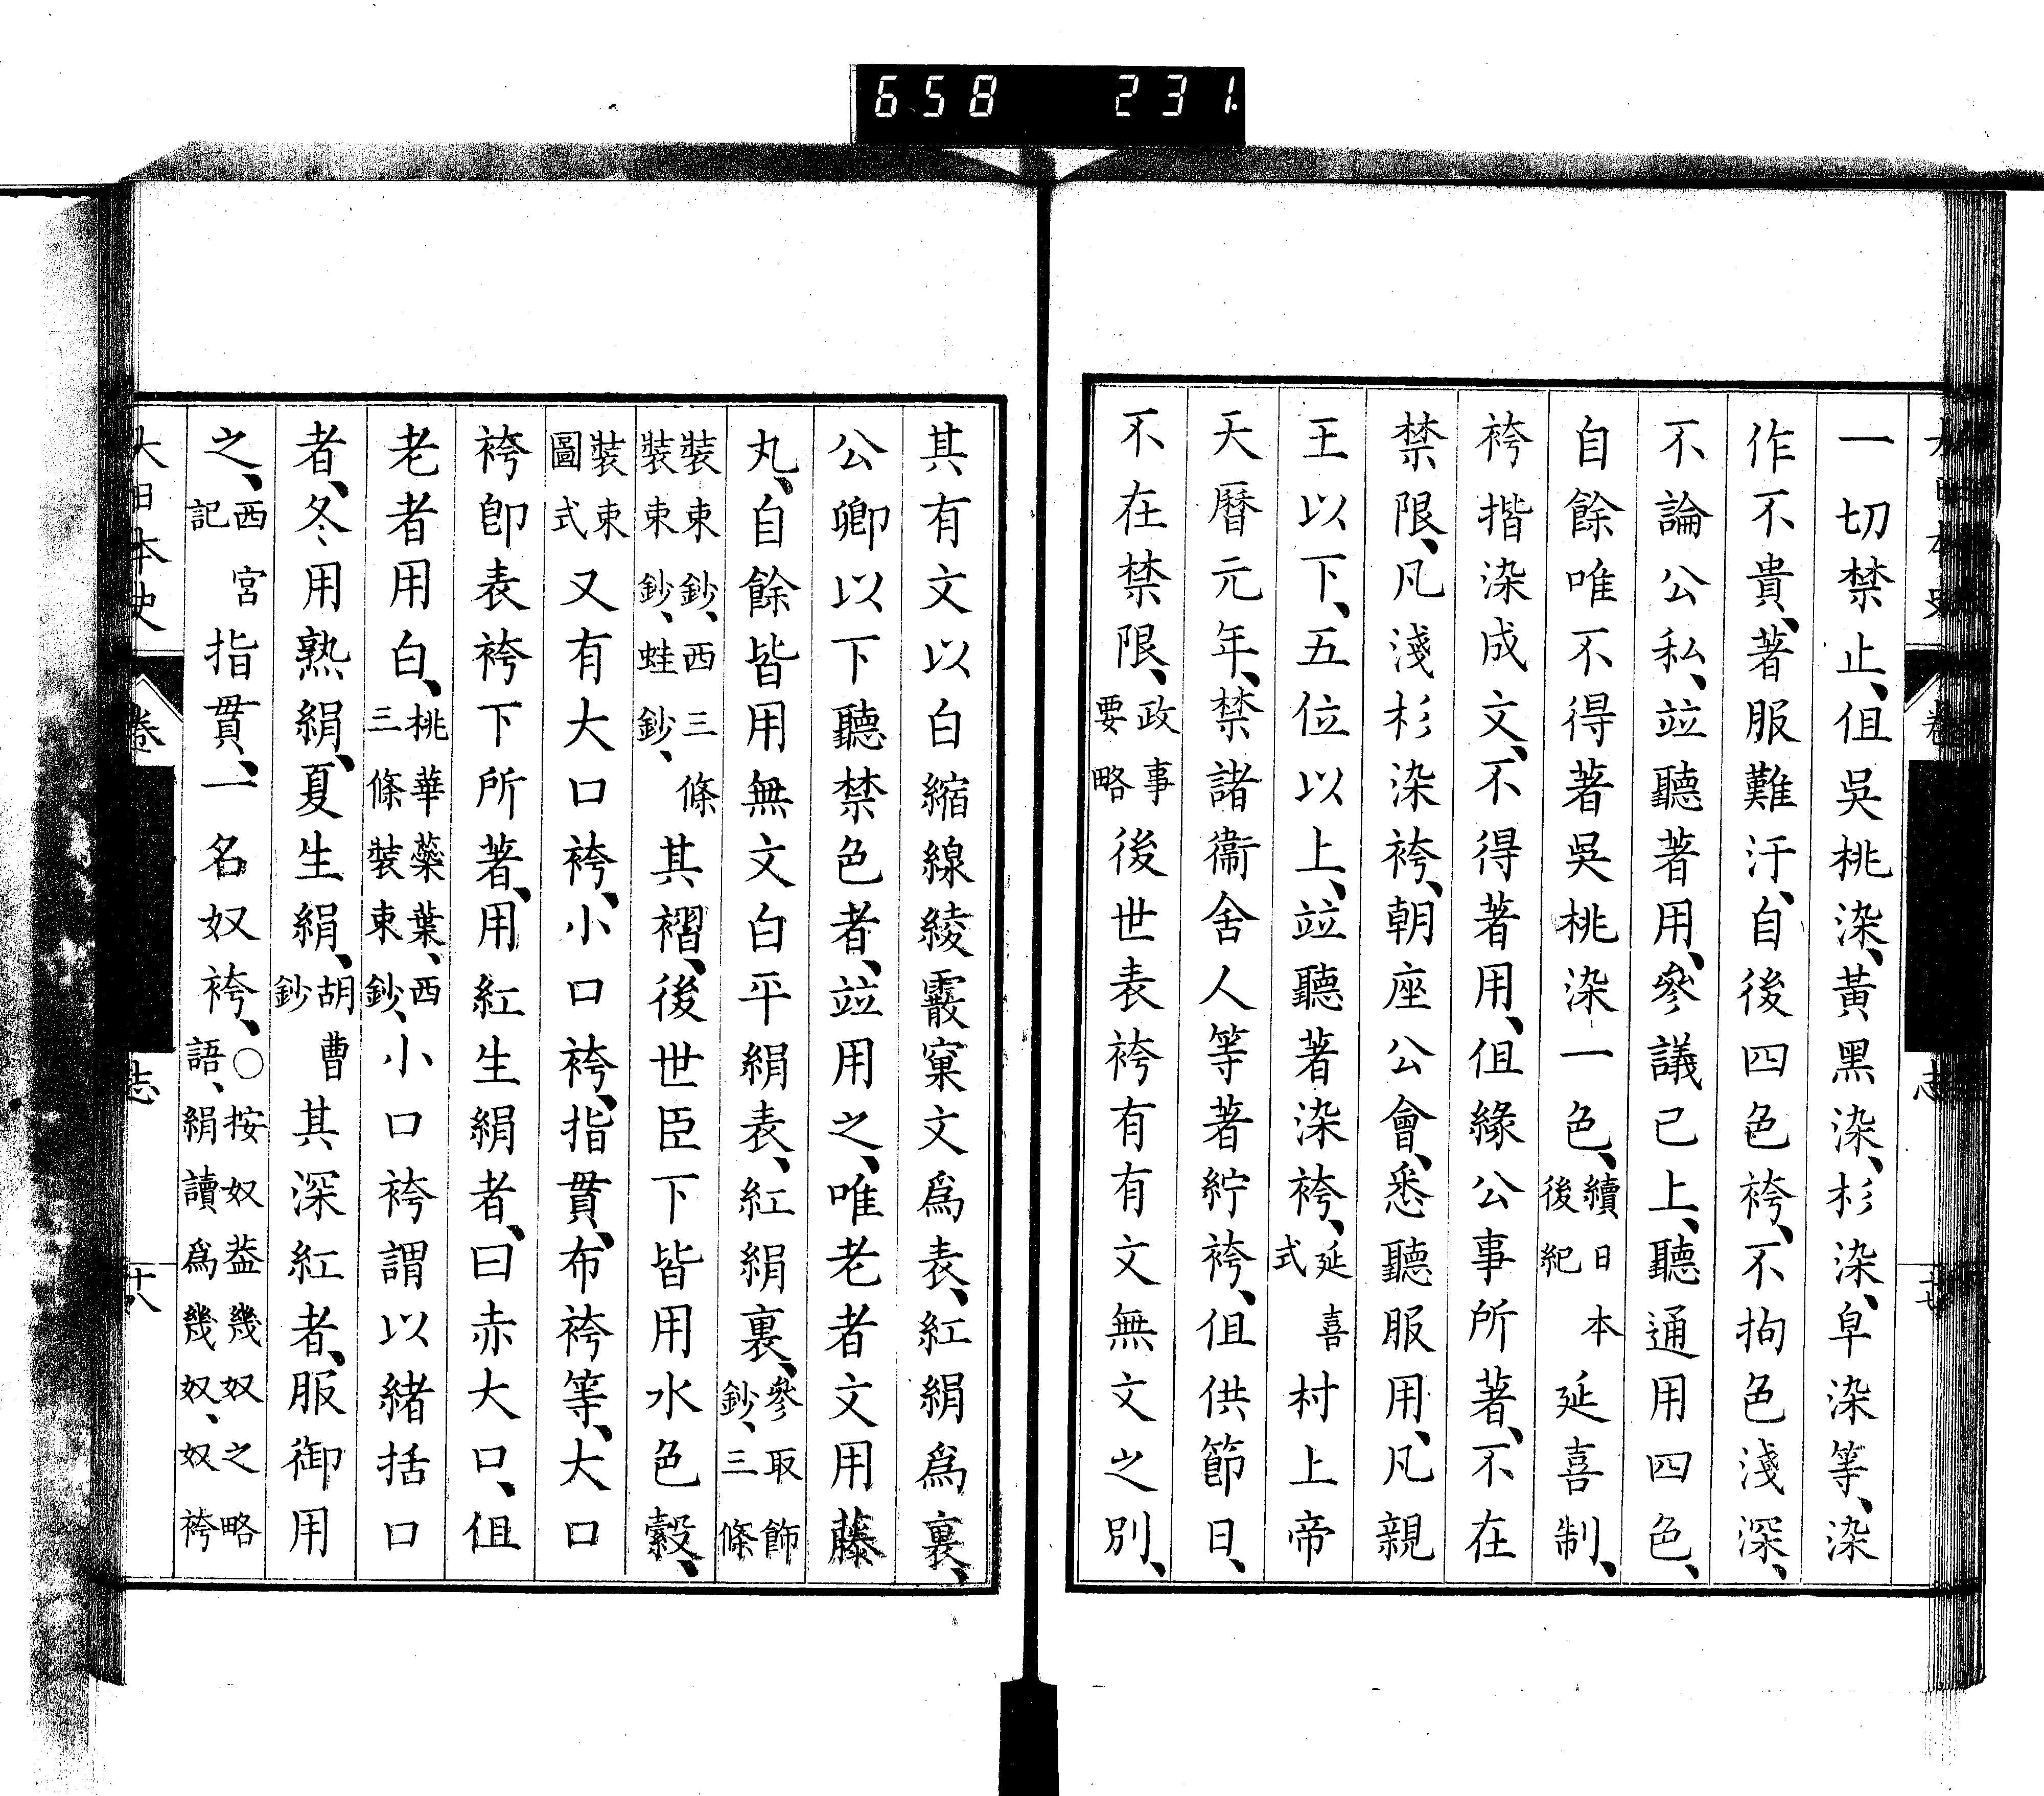 658 231.
一切禁止、但吳桃染、黃黑染、杉染、皁染等、染
作不貴、著服難汙、自後四色袴、不拘色淺深、
不論公私、竝聽著用、參議已上、聽通用四色、
自餘唯不得著吳桃染一色、續日本後紀延喜制、
袴揩染成文、不得著用、但緣公事所著、不在
禁限、凡淺杉染袴、朝座公會、悉聽服用、凡親
王以下、五位以上、竝聽著染袴、延喜式村上帝
天曆元年、禁諸衞舍人等著紵袴、但供節日、
不在禁限、政事要略後世表袴有有文無文之別、
其有文以白縮線綾霰窠文爲表、紅絹爲裏、
公卿以下聽禁色者、竝用之、唯老者文用藤
丸、自餘皆用無文白平絹表、紅絹裏、參取飾鈔、三條
裝束鈔、西三條裝束鈔、蛙鈔、其褶、後世臣下皆用水色縠、
裝束圖式又有大口袴、小口袴、指貫、布袴等、大口
袴卽表袴下所著、用紅生絹者、曰赤大口、但
老者用白、桃華蘂葉、西三條裝束鈔、小口袴謂以緒括口
者、冬用熟絹、夏生絹、胡曹鈔其深紅者、服御用
之、西宮記指貫、一名奴袴、○按奴蓋幾奴之略語、絹讀爲幾奴、奴袴
大日本史 卷 志 十八